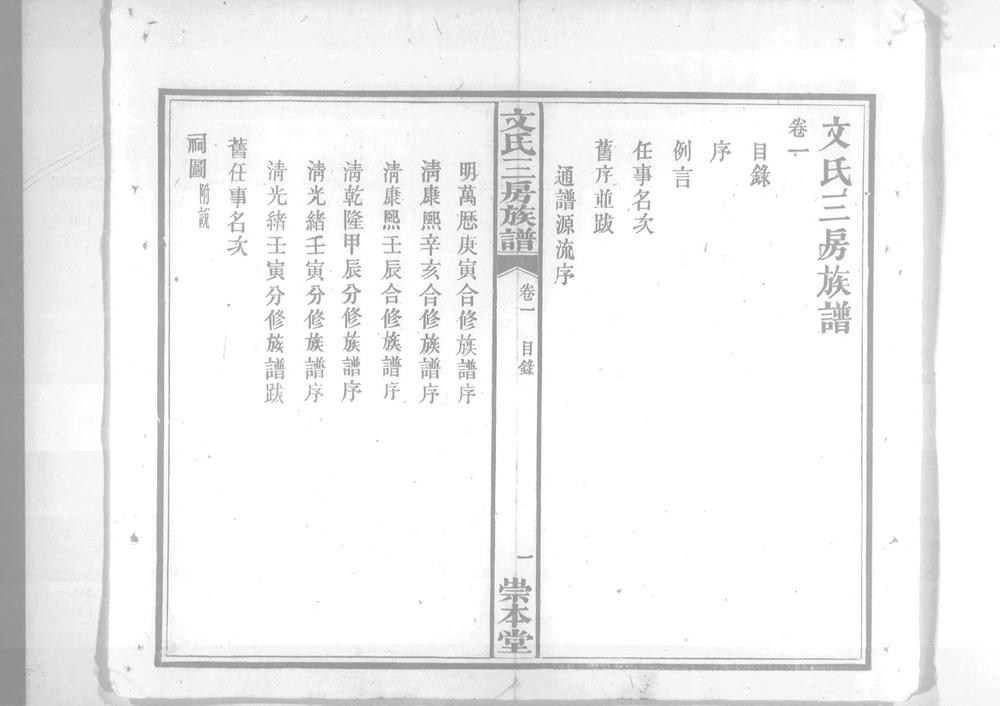 文氏三房族譜
卷一
目錄
序
例言
任事名次
舊序並跋
通譜源流序
文氏三房族譜
卷一
目錄
一
崇本堂
明萬歷庚寅合修族譜序
清康熙辛亥合修族譜序
清康熙壬辰合修族譜序
清乾隆甲辰分修族譜序
清光緒壬寅分修族譜序
清光緒壬寅分修族譜跋
舊任事名次
祠圖附說